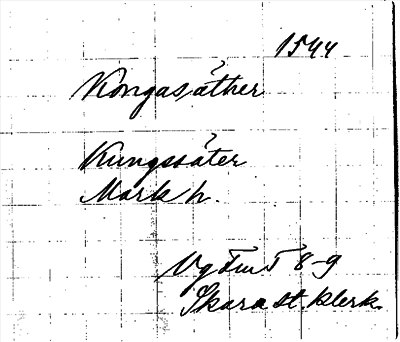 1544
Kongasäther
Kungssäter
Mark h.
Vg Fmt 8-9
Skara st. klerk.